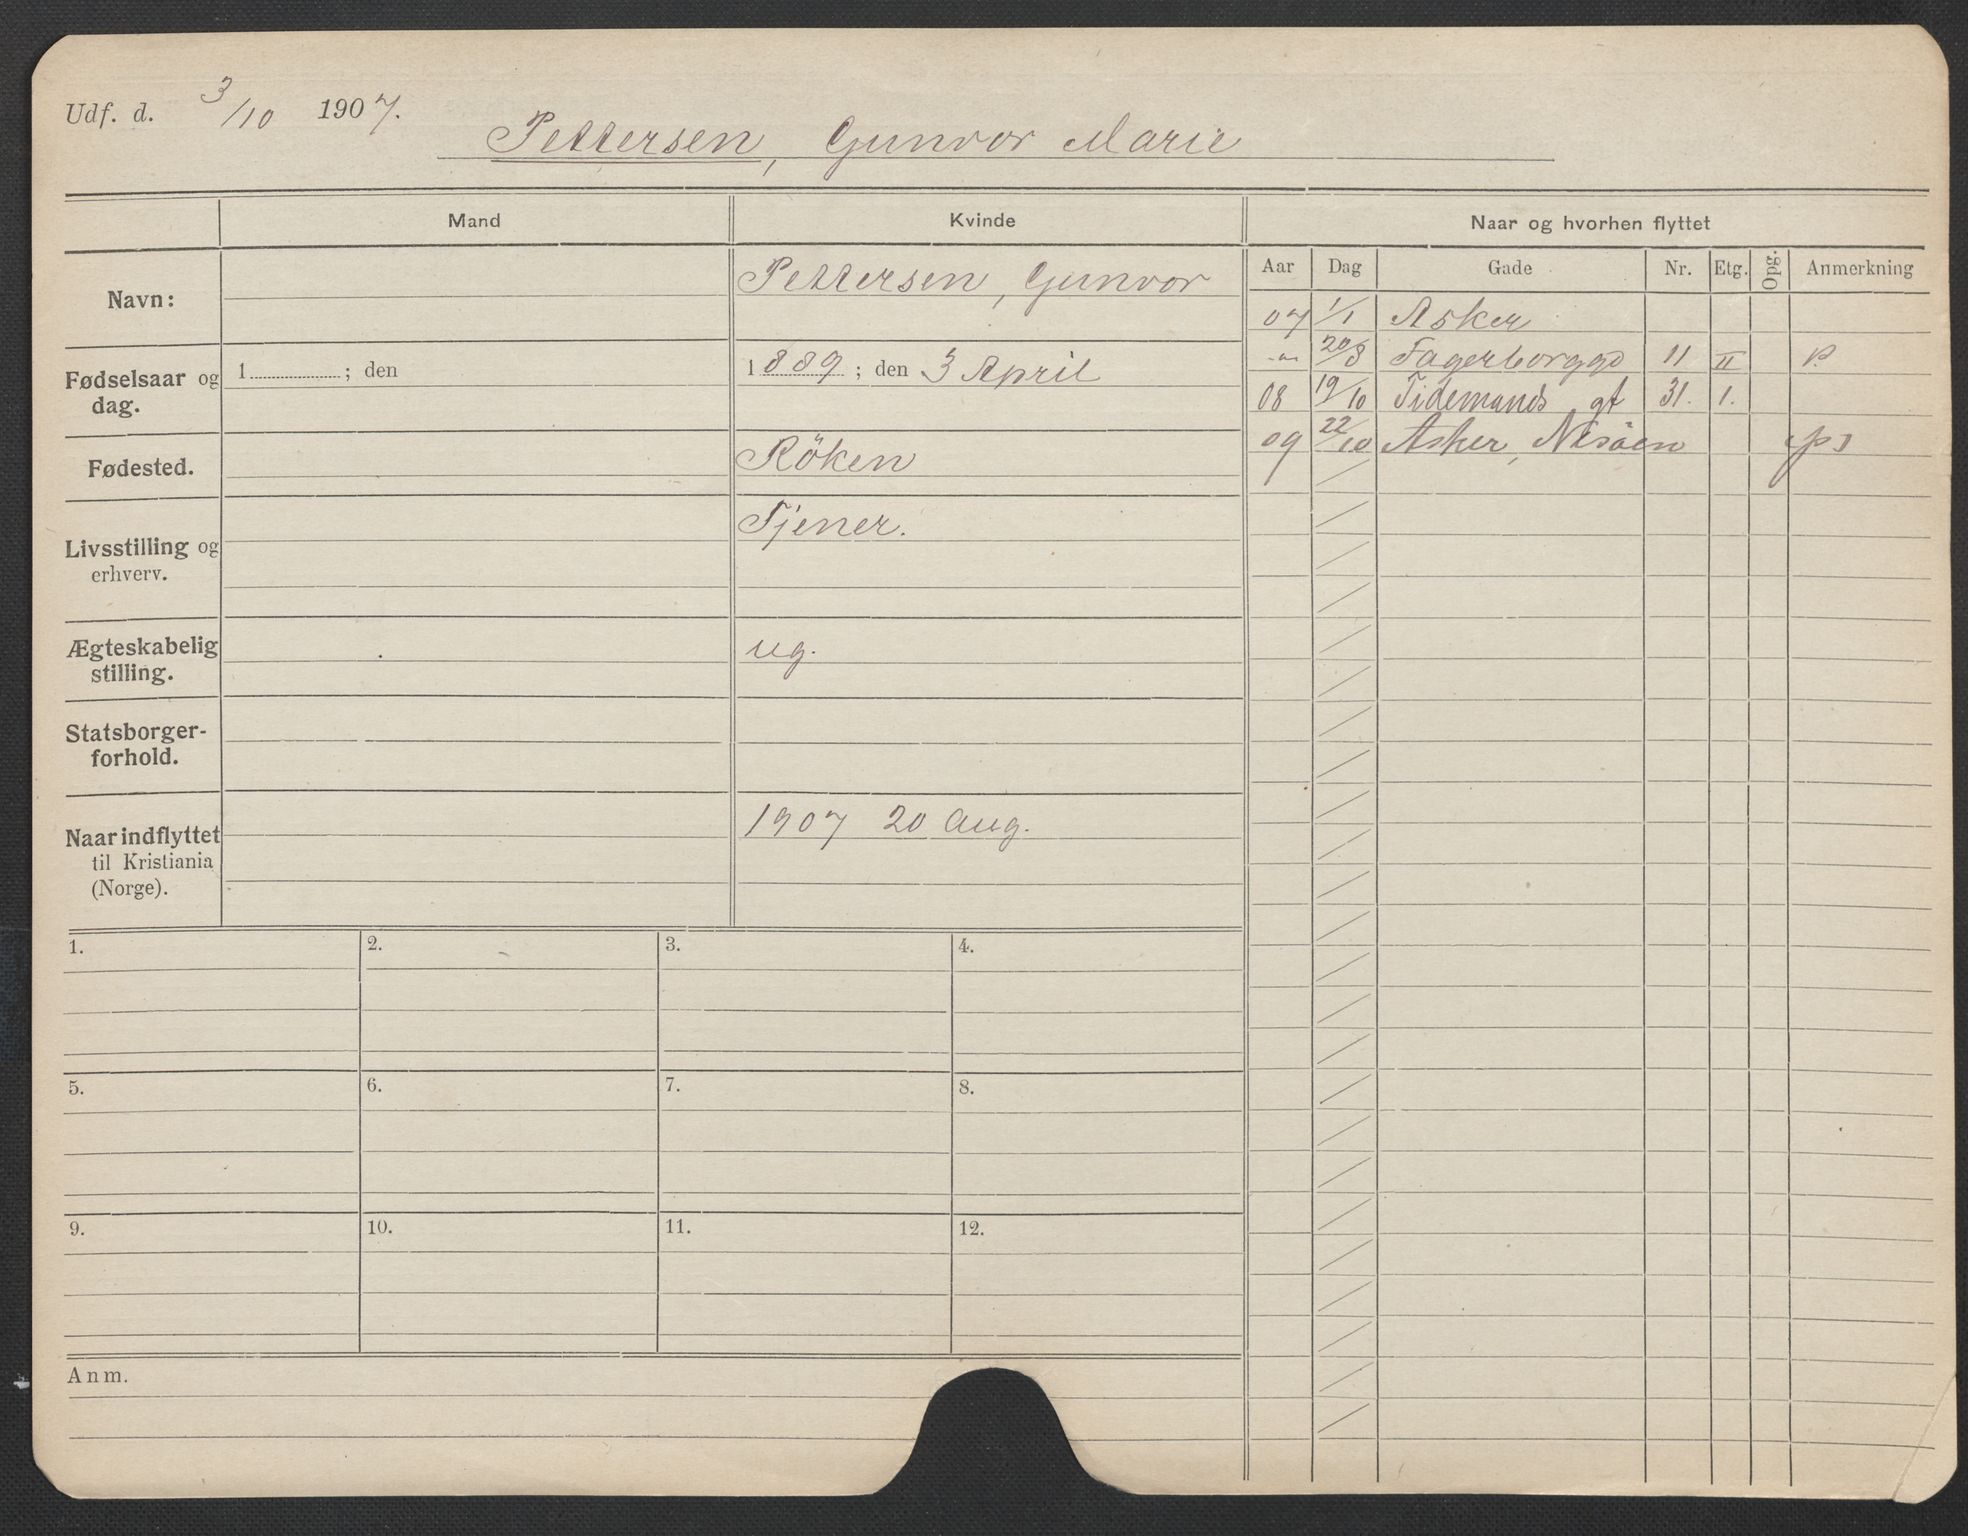 Udf. d. 3/10 1907.
Pettersen, Gunvor Marie
Mand Kvinde Naar og hvorhen flyttet
Aar Dag Gade Nr. Etg. Opg. Anmerkning
Navn: Pettersen, Gunvor
07 1/1 Asker
20/8 Fagerborggd 11 II P.
Fødselsaar og dag. 1 ; den 1889 ; den 3 April
08 19/10 Tidemands gt 31. 1.
09 22/10 Asker, Nesöen
Fødested. Röken
Livsstilling og erhverv. Tjener.
Ægteskabelig stilling. ug.
Statsborger-
forhold.
Naar indflyttet 1907 20 Aug.
til Kristiania
(Norge).
1. 2. 3. 4.
5. 6. 7. 8.
9. 10. 11. 12.
Anm.